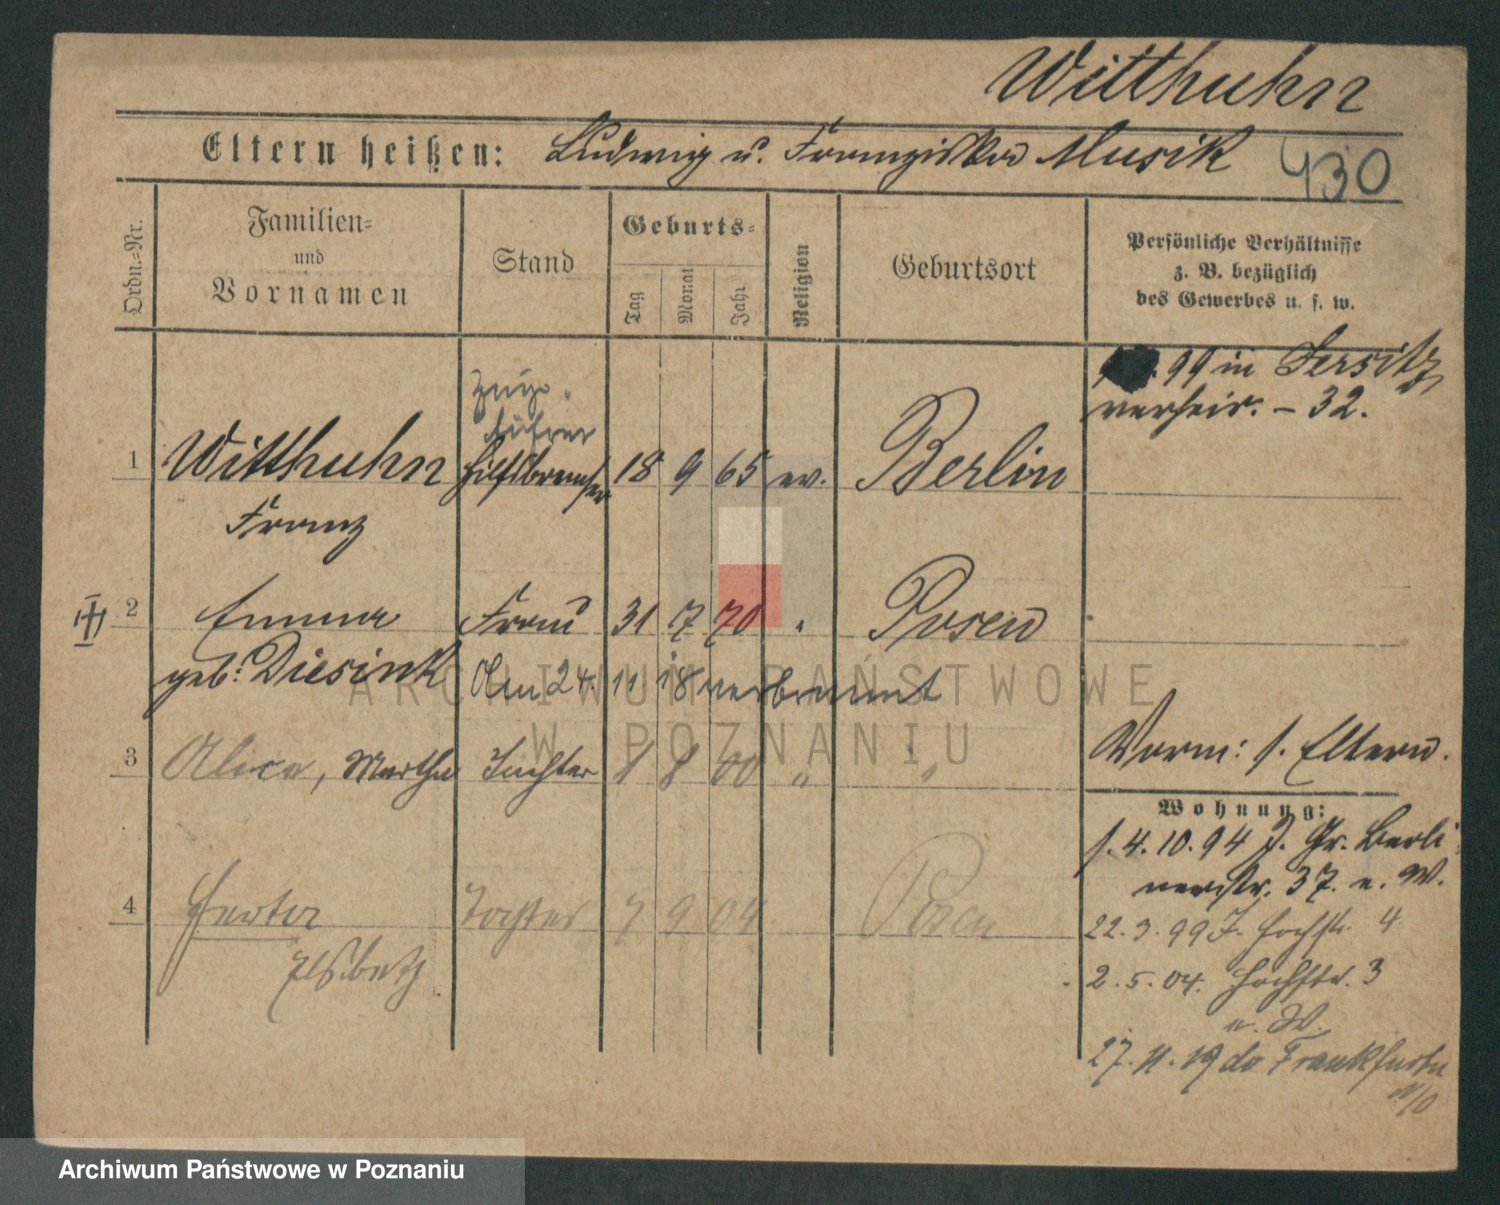 Witthuhn
Eltern heißen: Ludwig u. Franziska Musik
430
Ordn.-Nr.
Familien- und Vornamen
Stand
Geburts-
Tag
Monat
Jahr
Religion
Geburtsort
Persönliche Verhältnisse
z. B. bezüglich
des Gewerbes u. s. w.
99 in Jersitz
verheir. - 32.
Zugführer
1 Witthuhn Hilfsbremser 18 9 65 ev. Berlin
Franz
2 Emma Frau 31 7 70 " Posen
geb. Diesink Am 24. 11 18 verbrannt
3 Alice, Martha Tochter 1 8 00 " "
Vorm: s. Eltern.
Wohnung:
s. 4. 10. 94 J. Gr. Berli
nerstr. 37. e. W.
4 Herta Tochter 7 9 04 Posen
Elsbeth
22. 3. 99 J. Hochstr. 4
2. 5. 04. Hochstr. 3
e. W.
27. 11. 19 do Frankfurt
a/O
ARCHIWUM PAŃSTWOWE
W POZNANIU
Archiwum Państwowe w Poznaniu